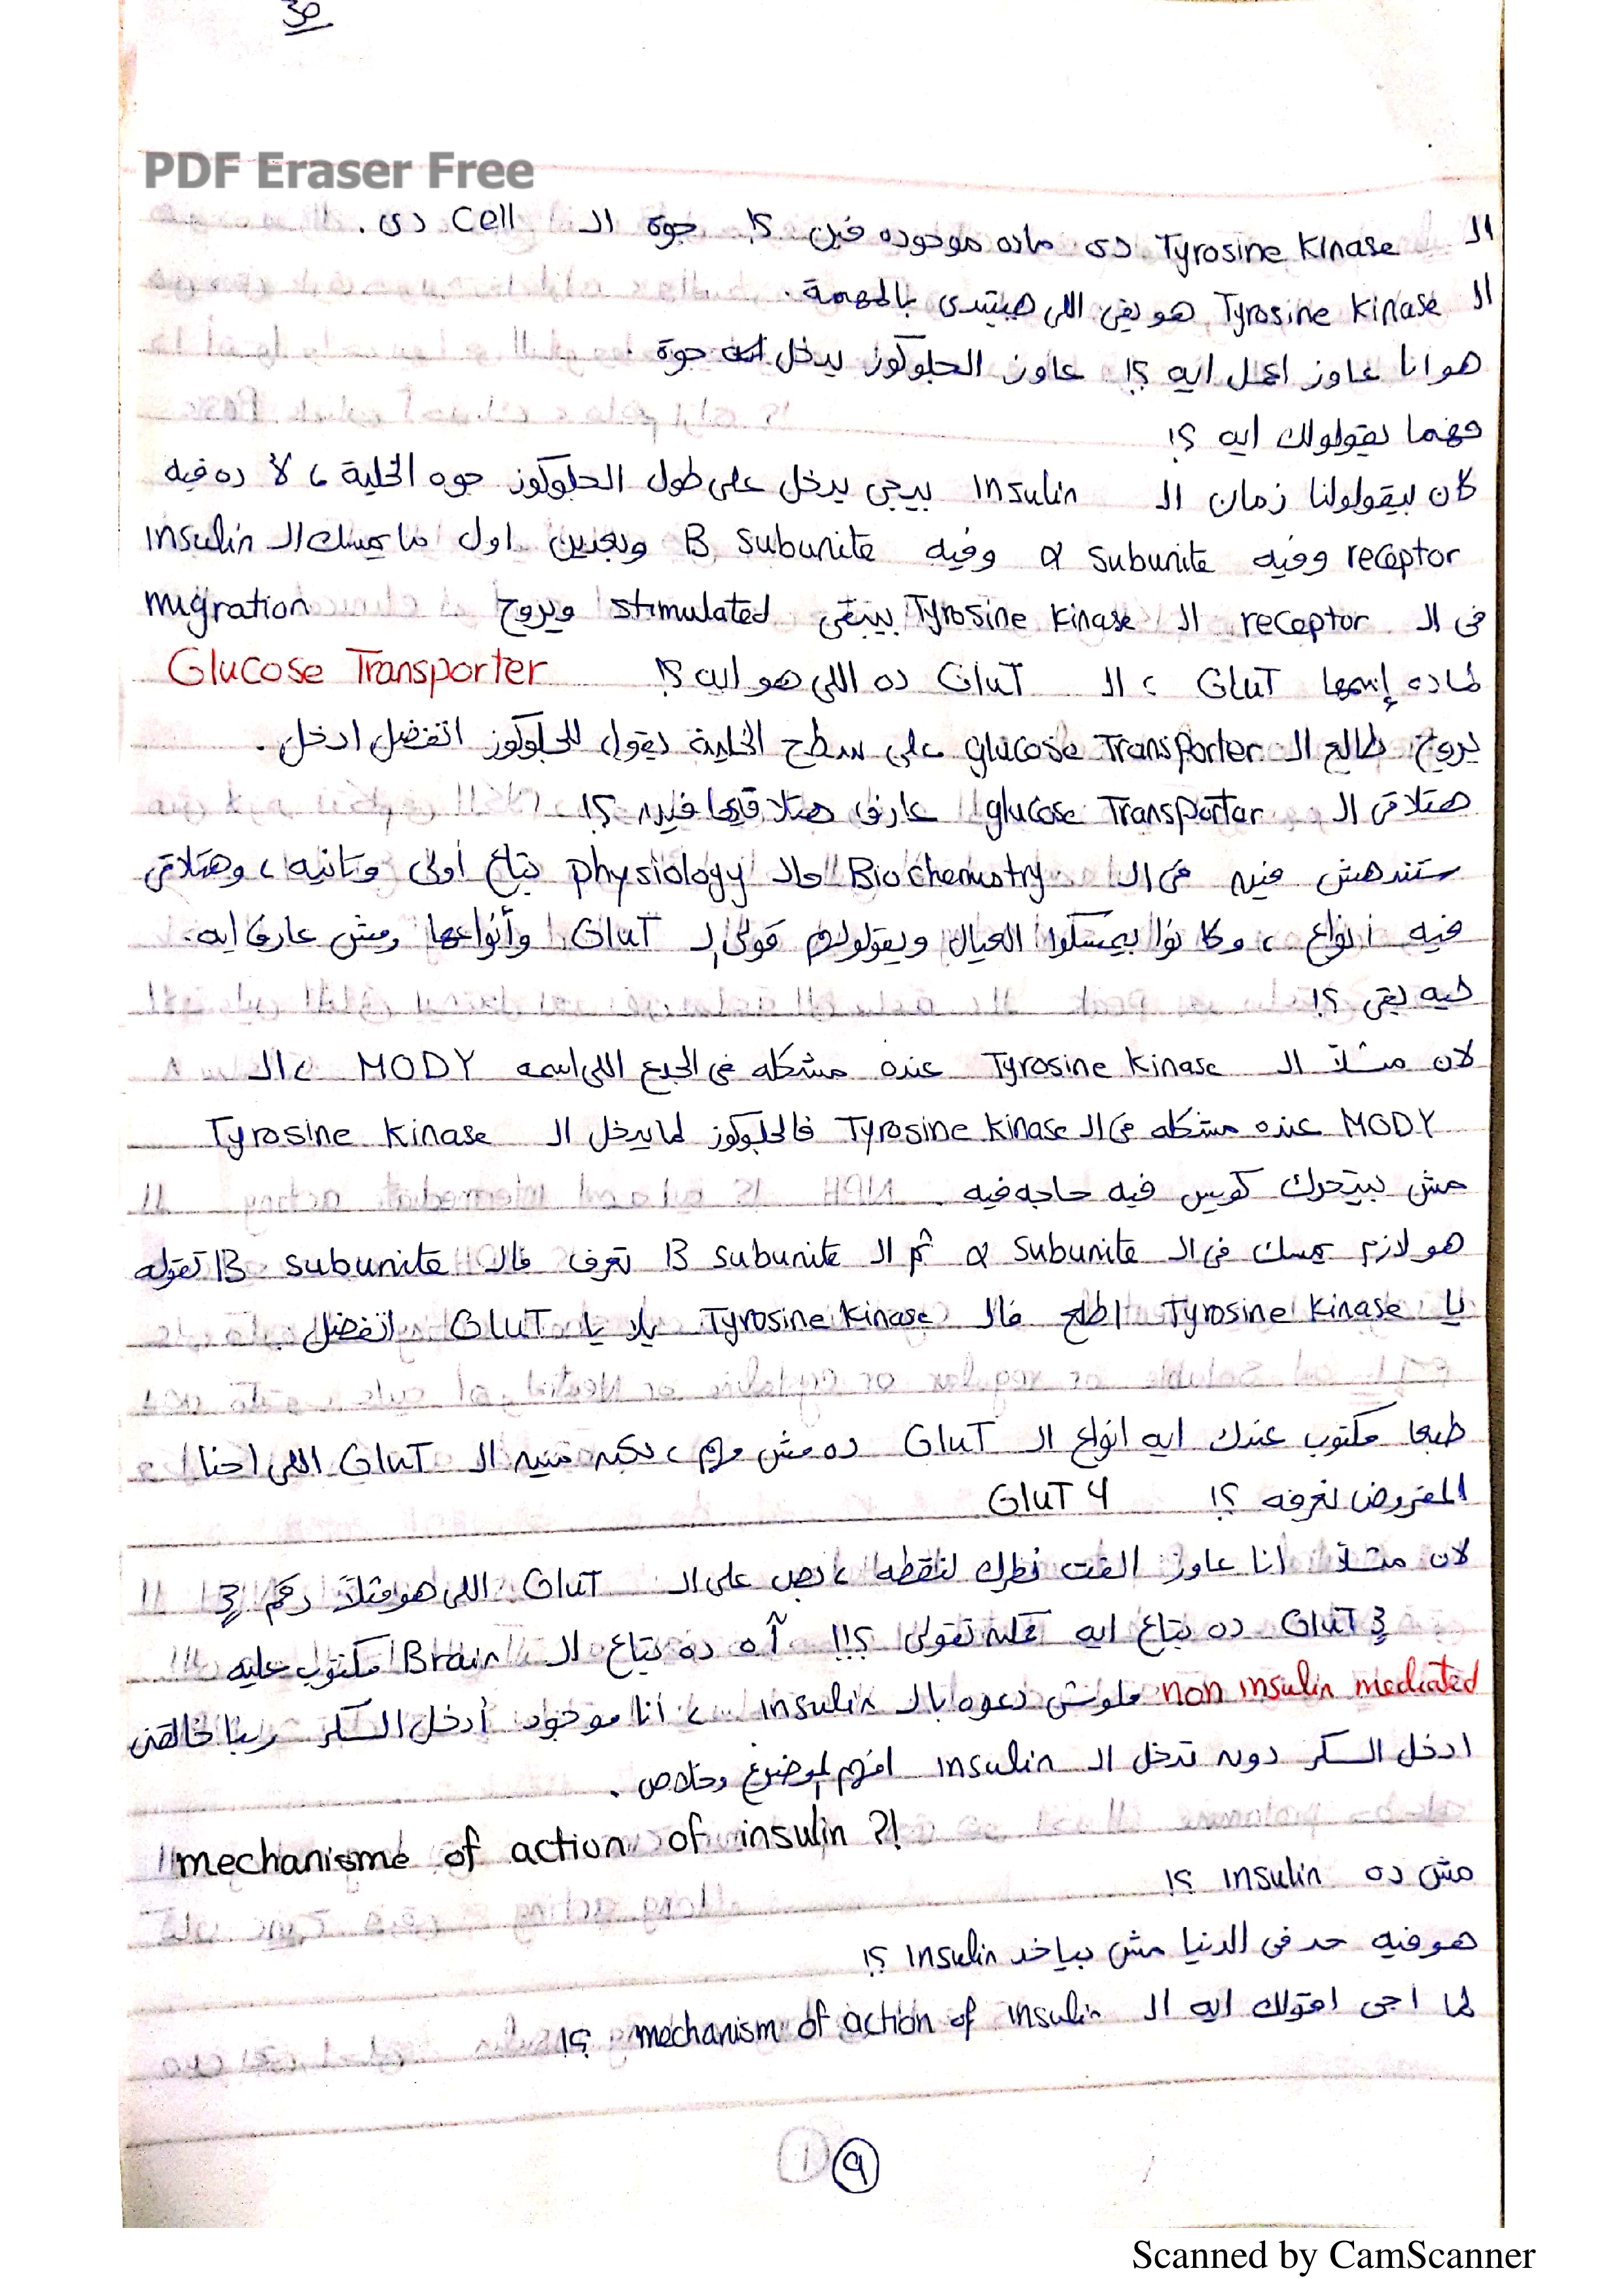 30
PDF Eraser Free
الـ Tyrosine Kinase دى ماده موجوده فين ؟! جوة الـ cell دى .
الـ Tyrosine Kinase هو بقى اللى هيبتدى بالمهمة .
هو انا عاوز اعمل ايه ؟! عاوز الجلوكوز يدخل جوة .
فهما بيقولولك ايه ؟!
كان بيقولولنا زمان الـ Insulin بييجى يدخل على طول الجلوكوز جوه الخلية ، لأ ده فيه
receptor وفيه α subunite وفيه B subunite وبعدين اول ما يمسك الـ insulin
فى الـ receptor الـ Tyrosine Kinase بيبقى stimulated ويروح migration
لماده إسمها GluT ، الـ GluT ده اللى هو ايه ؟! Glucose Transporter
يروح طالع الـ glucose Transporter على سطح الخلية يقول للجلوكوز اتفضل ادخل .
هتلاقى الـ glucose Transportar عارف هتلاقيها فين ؟!
ستندهش فيه فى الـ Biochemistry والـ physiology بتاع أولى وتانيه ، وهتلاقى
فيه انواع ، وكانوا بيمسكوا العيال ويقولولهم قولى الـ GluT وأنواعها ومش عارف ايه .
ليه بقى ؟!
لان مثلاً الـ Tyrosine Kinase عنده مشكله فى الجدع اللى اسمه MODY ، الـ
MODY عنده مشكله فى الـ Tyrosine Kinase فالجلوكوز لما يدخل الـ Tyrosine Kinase
مش بيتحرك كويس فيه حاجه فيه .
هو لازم يمسك فى الـ α subunite ثم الـ B subunite تعرف فالـ B subunite تقوله
يا Tyrosine Kinase اطلع فالـ Tyrosine Kinase يلا يا GluT اتفضل .
طبعا مكتوب عندك ايه انواع الـ GluT ده مش مهم ، لكن فيه الـ GluT اللى احنا
المفروض نعرفه ؟! GluT 4
لان مثلاً انا عاوز الفت نظرك لنقطه ، بص على الـ GluT اللى هو مثلاً رقم 3
GluT 3 ده بتاع ايه تقولى ؟!! آه ده بتاع الـ Brain مكتوب عليه
non insulin mediated ملوش دعوه بالـ insulin ، أنا موجود أدخل السكر ربنا خالقنى
ادخل السكر دون تدخل الـ insulin افهم الموضوع وخلاص .
mechanisme of action of insulin ?!
مش ده insulin ؟!
هو فيه حد فى الدنيا مش بياخد Insulin ؟!
لما اجى اقولك ايه الـ mechanism of action of insulin ؟!
9
Scanned by CamScanner